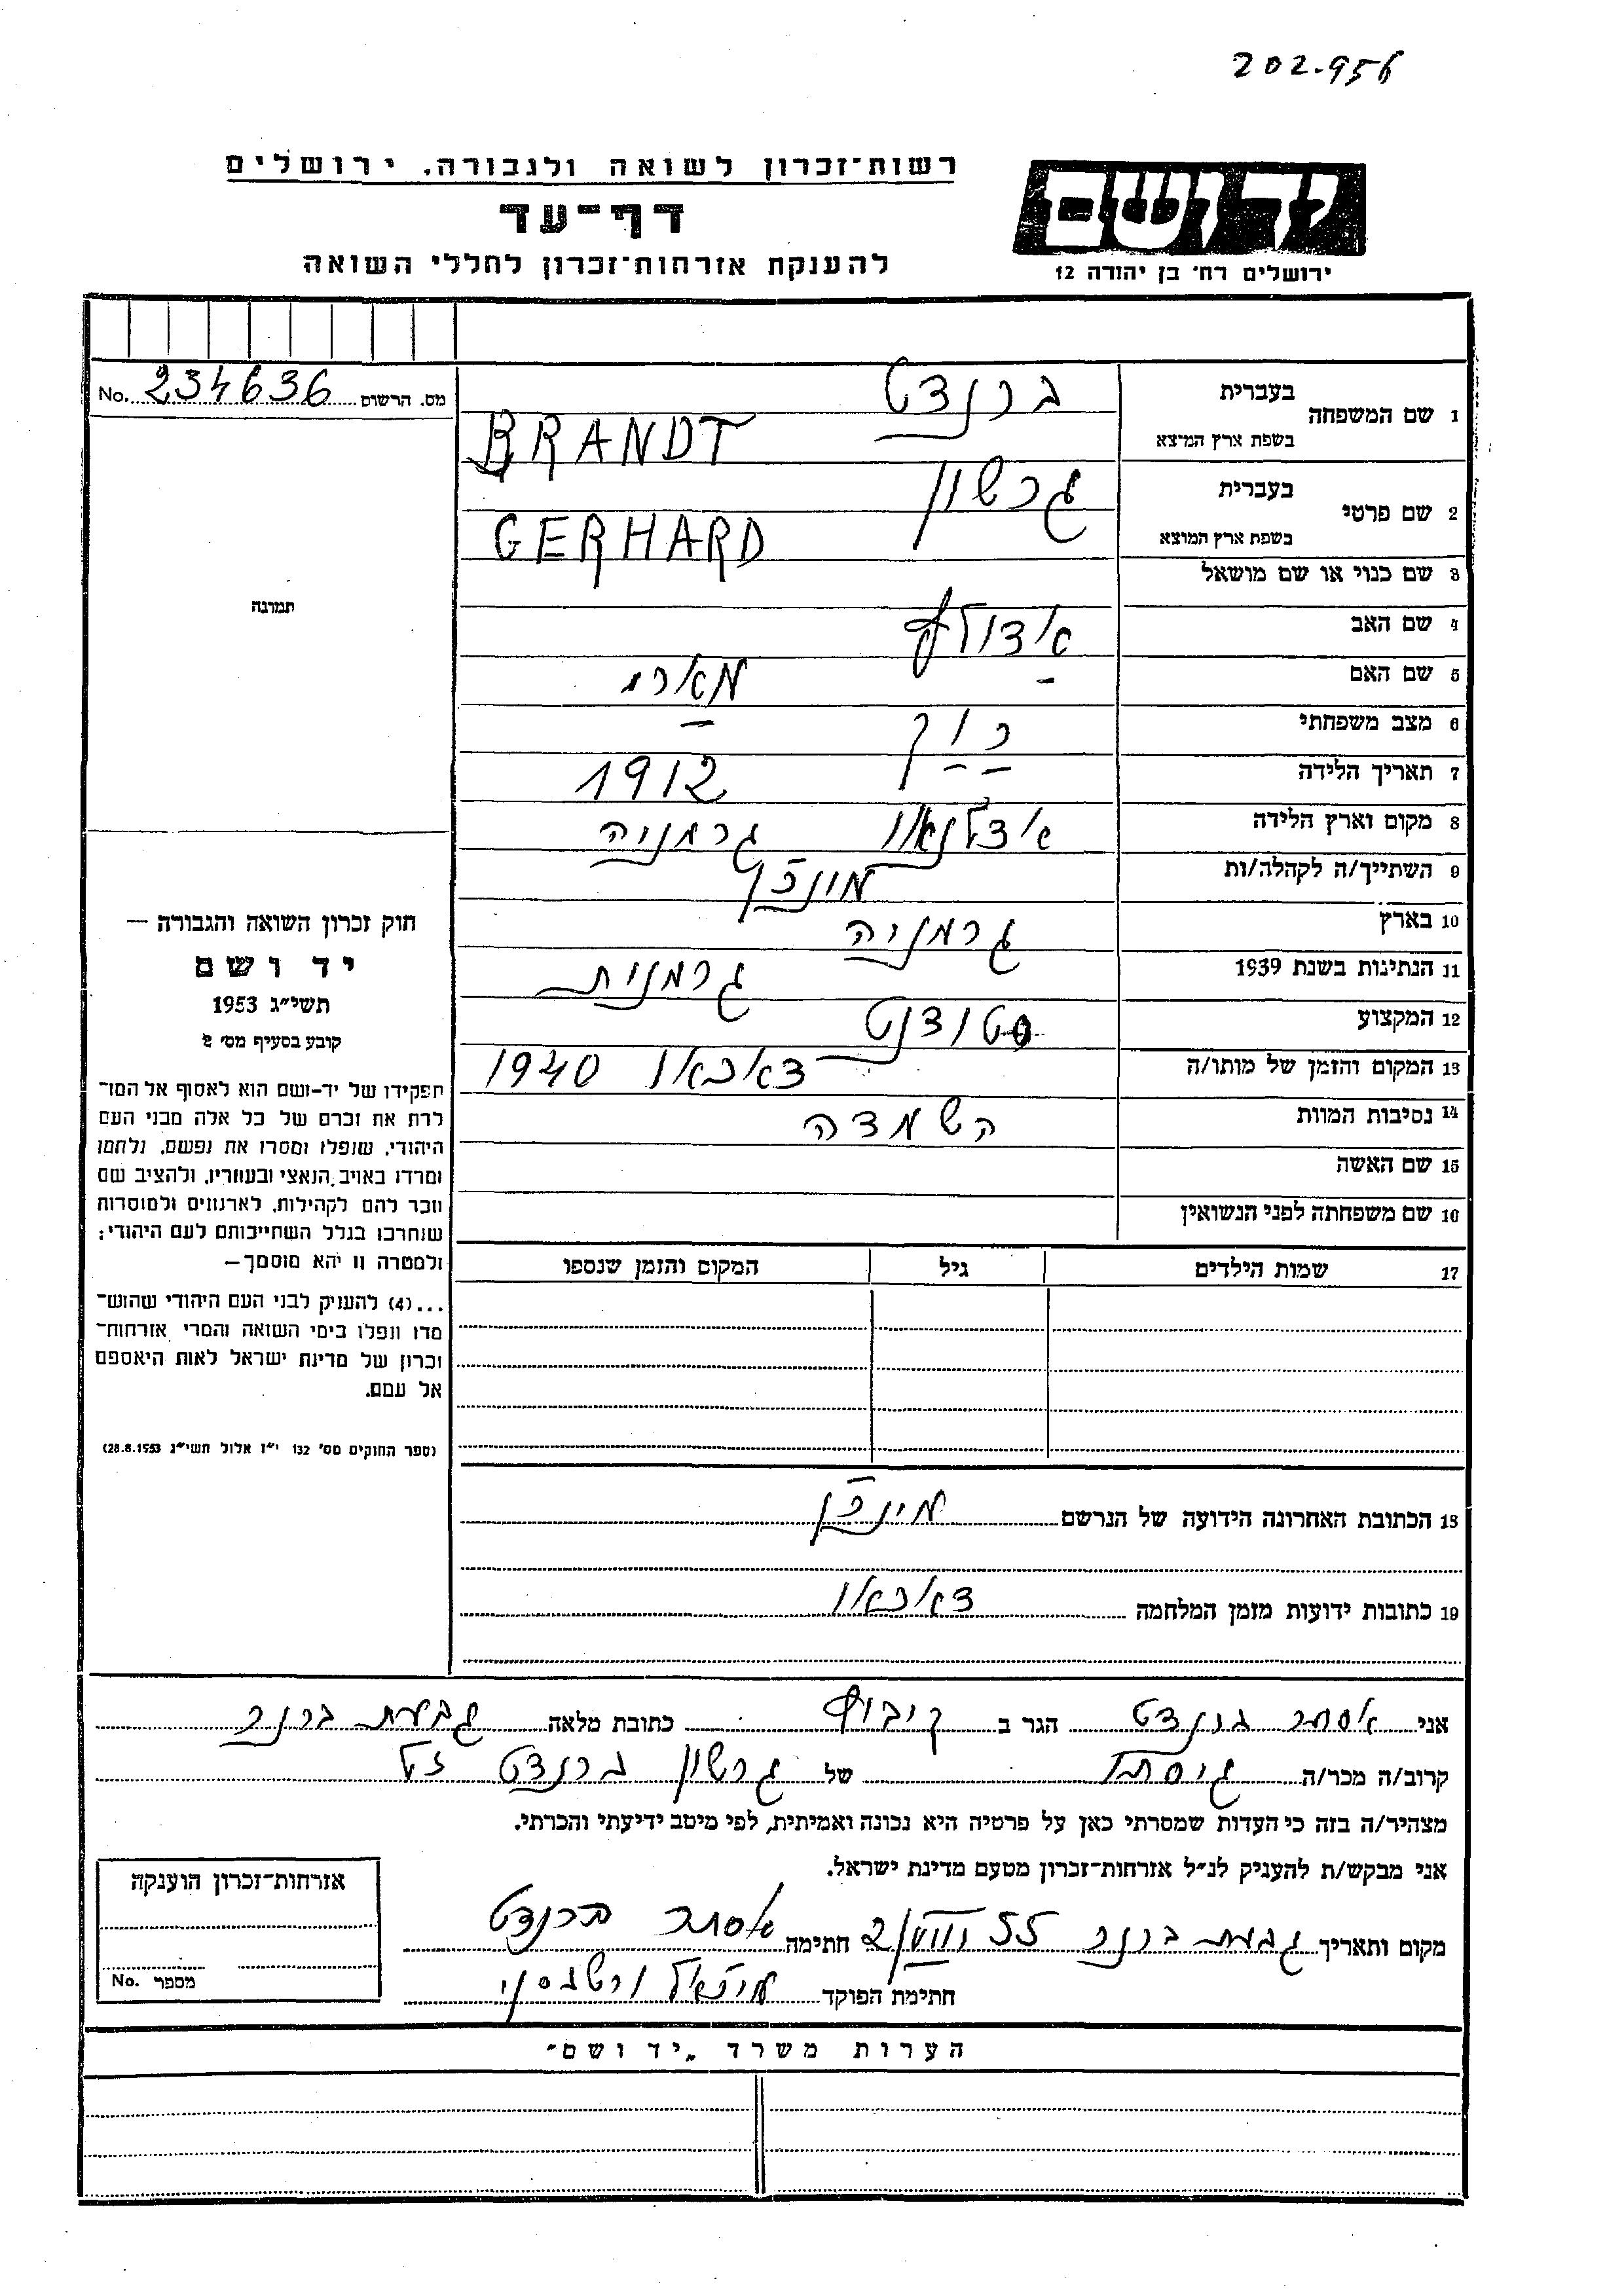 202.956
רשות־זכרון לשואה ולגבורה. ירושלים
יד ושם
דף־עד
להענקת אזרחות־זכרון לחללי השואה
ירושלים רח׳ בן יהודה 12
מס. הרשום 234636 No.
1 שם המשפחה בעברית ברנדט
בשפת ארץ המוצא BRANDT
2 שם פרטי בעברית גרשון
בשפת ארץ המוצא GERHARD
3 שם כנוי או שם מושאל
4 שם האב אדולף
5 שם האם מארי
6 מצב משפחתי רווק
7 תאריך הלידה 1912
8 מקום וארץ הלידה גרמניה
9 השתייך/ה לקהלה/ות מונכן
10 בארץ גרמניה
11 הנתינות בשנת 1939 גרמנית
12 המקצוע סטודנט
13 המקום והזמן של מותו/ה דאכאו 1940
14 נסיבות המוות השמדה
15 שם האשה
16 שם משפחתה לפני הנשואין
17 שמות הילדים גיל המקום והזמן שנספו
תמונה
חוק זכרון השואה והגבורה —
יד ושם
תשי״ג 1953
קובע בסעיף מס׳ 2
תפקידו של יד-ושם הוא לאסוף אל המו־
לדת את זכרם של כל אלה מבני העם
היהודי, שנפלו ומסרו את נפשם, נלחמו
ומרדו באויב הנאצי ובעוזריו, ולהציב שם
וזכר להם לקהילות, לארגונים ולמוסדות
שנחרבו בגלל השתייכותם לעם היהודי;
ולמטרה זו יהא מוסמך—
...(4) להעניק לבני העם היהודי שהוש־
מדו ונפלו בימי השואה והמרי אזרחות־
זכרון של מדינת ישראל לאות היאספם
אל עמם.
(ספר החוקים מס׳ 132 י״ז אלול תשי״ג 28.8.1953)
18 הכתובת האחרונה הידועה של הנרשם מינכן
19 כתובות ידועות מזמן המלחמה דאכאו
אני אסתר ברנדט הגר ב קיבוץ כתובת מלאה גבעת ברנר
קרוב/ה מכר/ה גיסתו של גרשון ברנדט ז״ל
מצהיר/ה בזה כי העדות שמסרתי כאן על פרטיה היא נכונה ואמיתית, לפי מיטב ידיעתי והכרתי.
אני מבקש/ת להעניק לנ״ל אזרחות־זכרון מטעם מדינת ישראל.
מקום ותאריך גבעת ברנר 2/VIII 55 חתימה אסתר ברנדט
חתימת הפוקד
אזרחות־זכרון הוענקה
מספר No.
הערות משרד „יד ושם״